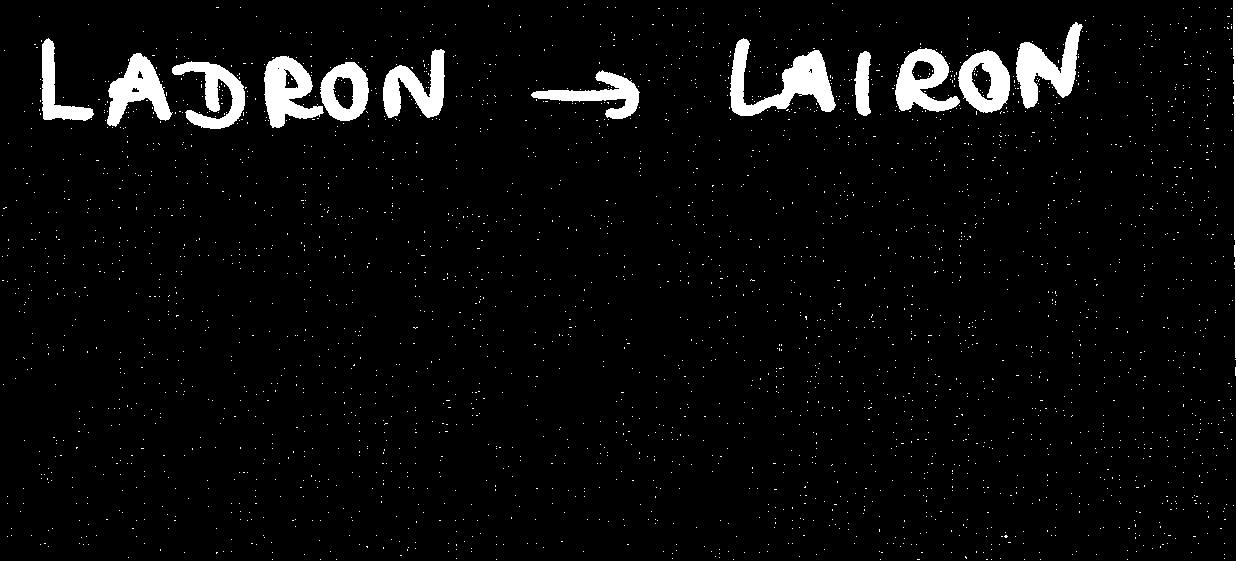 LADRON → LAIRON